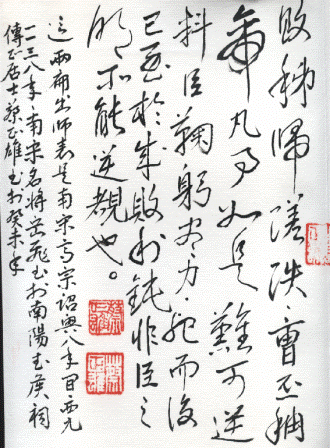 敗秭歸蹉跌曹丕稱
帝凡事如是難可逆
料臣鞠躬盡力死而後
已至於成敗利鈍非臣之
明所能逆覩也。
這兩篇出師表是南宋高宗詔興八年西元
一一三八年南宋名將岳飛書於南陽武侯祠
傳正居士蔡正雄書於癸未年